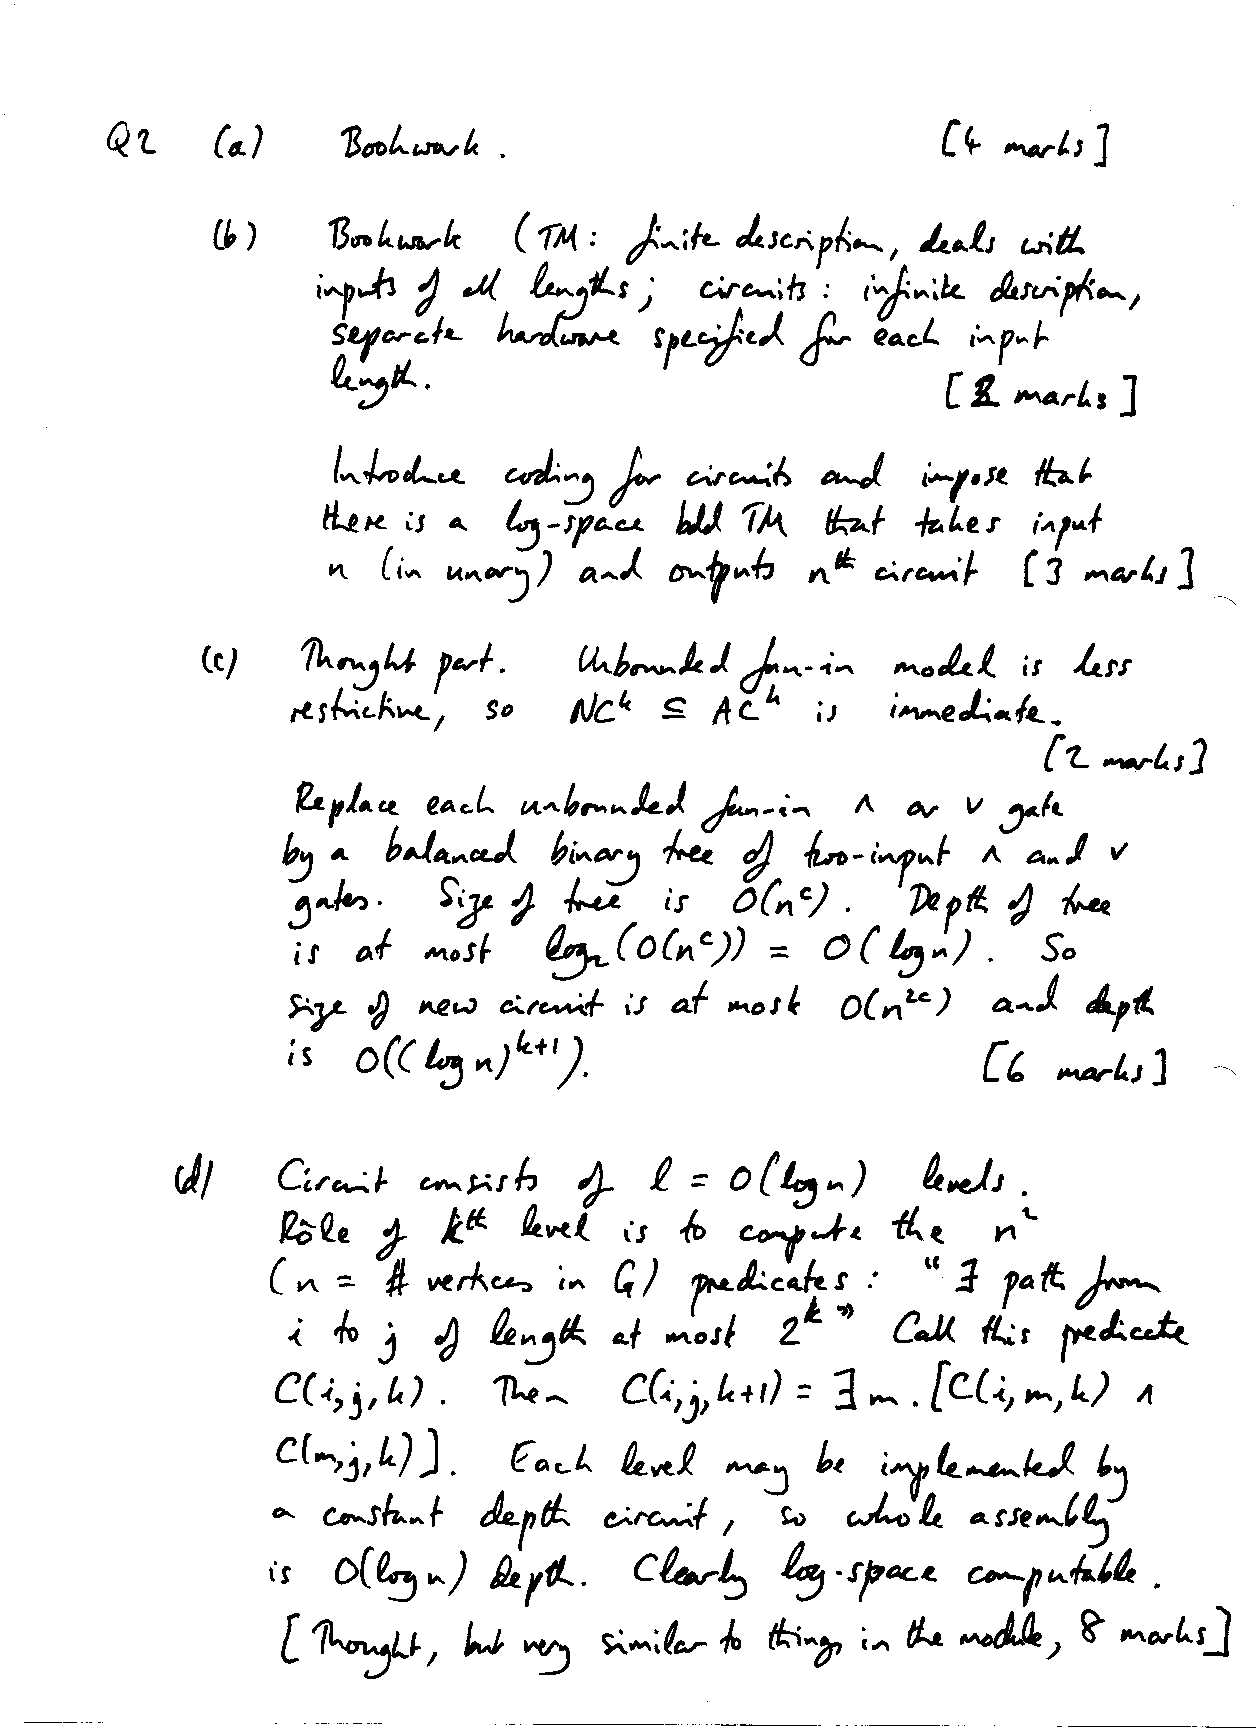 Q2 (a) Bookwork. [4 marks]
(b) Bookwork (TM: finite description, deals with
inputs of all lengths; circuits: infinite description,
separate hardware specified for each input
length. [2 marks]
Introduce coding for circuits and impose that
there is a log-space bdd TM that takes input
n (in unary) and outputs nth circuit [3 marks]
(c) Thought part. Unbounded fan-in model is less
restrictive, so NC^k ⊆ AC^k is immediate.
[2 marks]
Replace each unbounded fan-in ∧ or ∨ gate
by a balanced binary tree of two-input ∧ and ∨
gates. Size of tree is O(n^c). Depth of tree
is at most log₂(O(n^c)) = O(log n). So
size of new circuit is at most O(n^{2c}) and depth
is O((log n)^{k+1}). [6 marks]
(d) Circuit consists of l = O(log n) levels.
Rôle of kth level is to compute the n²
(n = # vertices in G) predicates: "∃ path from
i to j of length at most 2^k" Call this predicate
C(i,j,k). Then C(i,j,k+1) = ∃m.[C(i,m,k) ∧
C(m,j,k)]. Each level may be implemented by
a constant depth circuit, so whole assembly
is O(log n) depth. Clearly log-space computable.
[Thought, but very similar to things in the module, 8 marks]